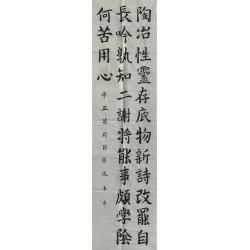 陶冶性靈存底物新詩改罷自
長吟孰知二謝將能事頗學陰
何苦用心
辛丑